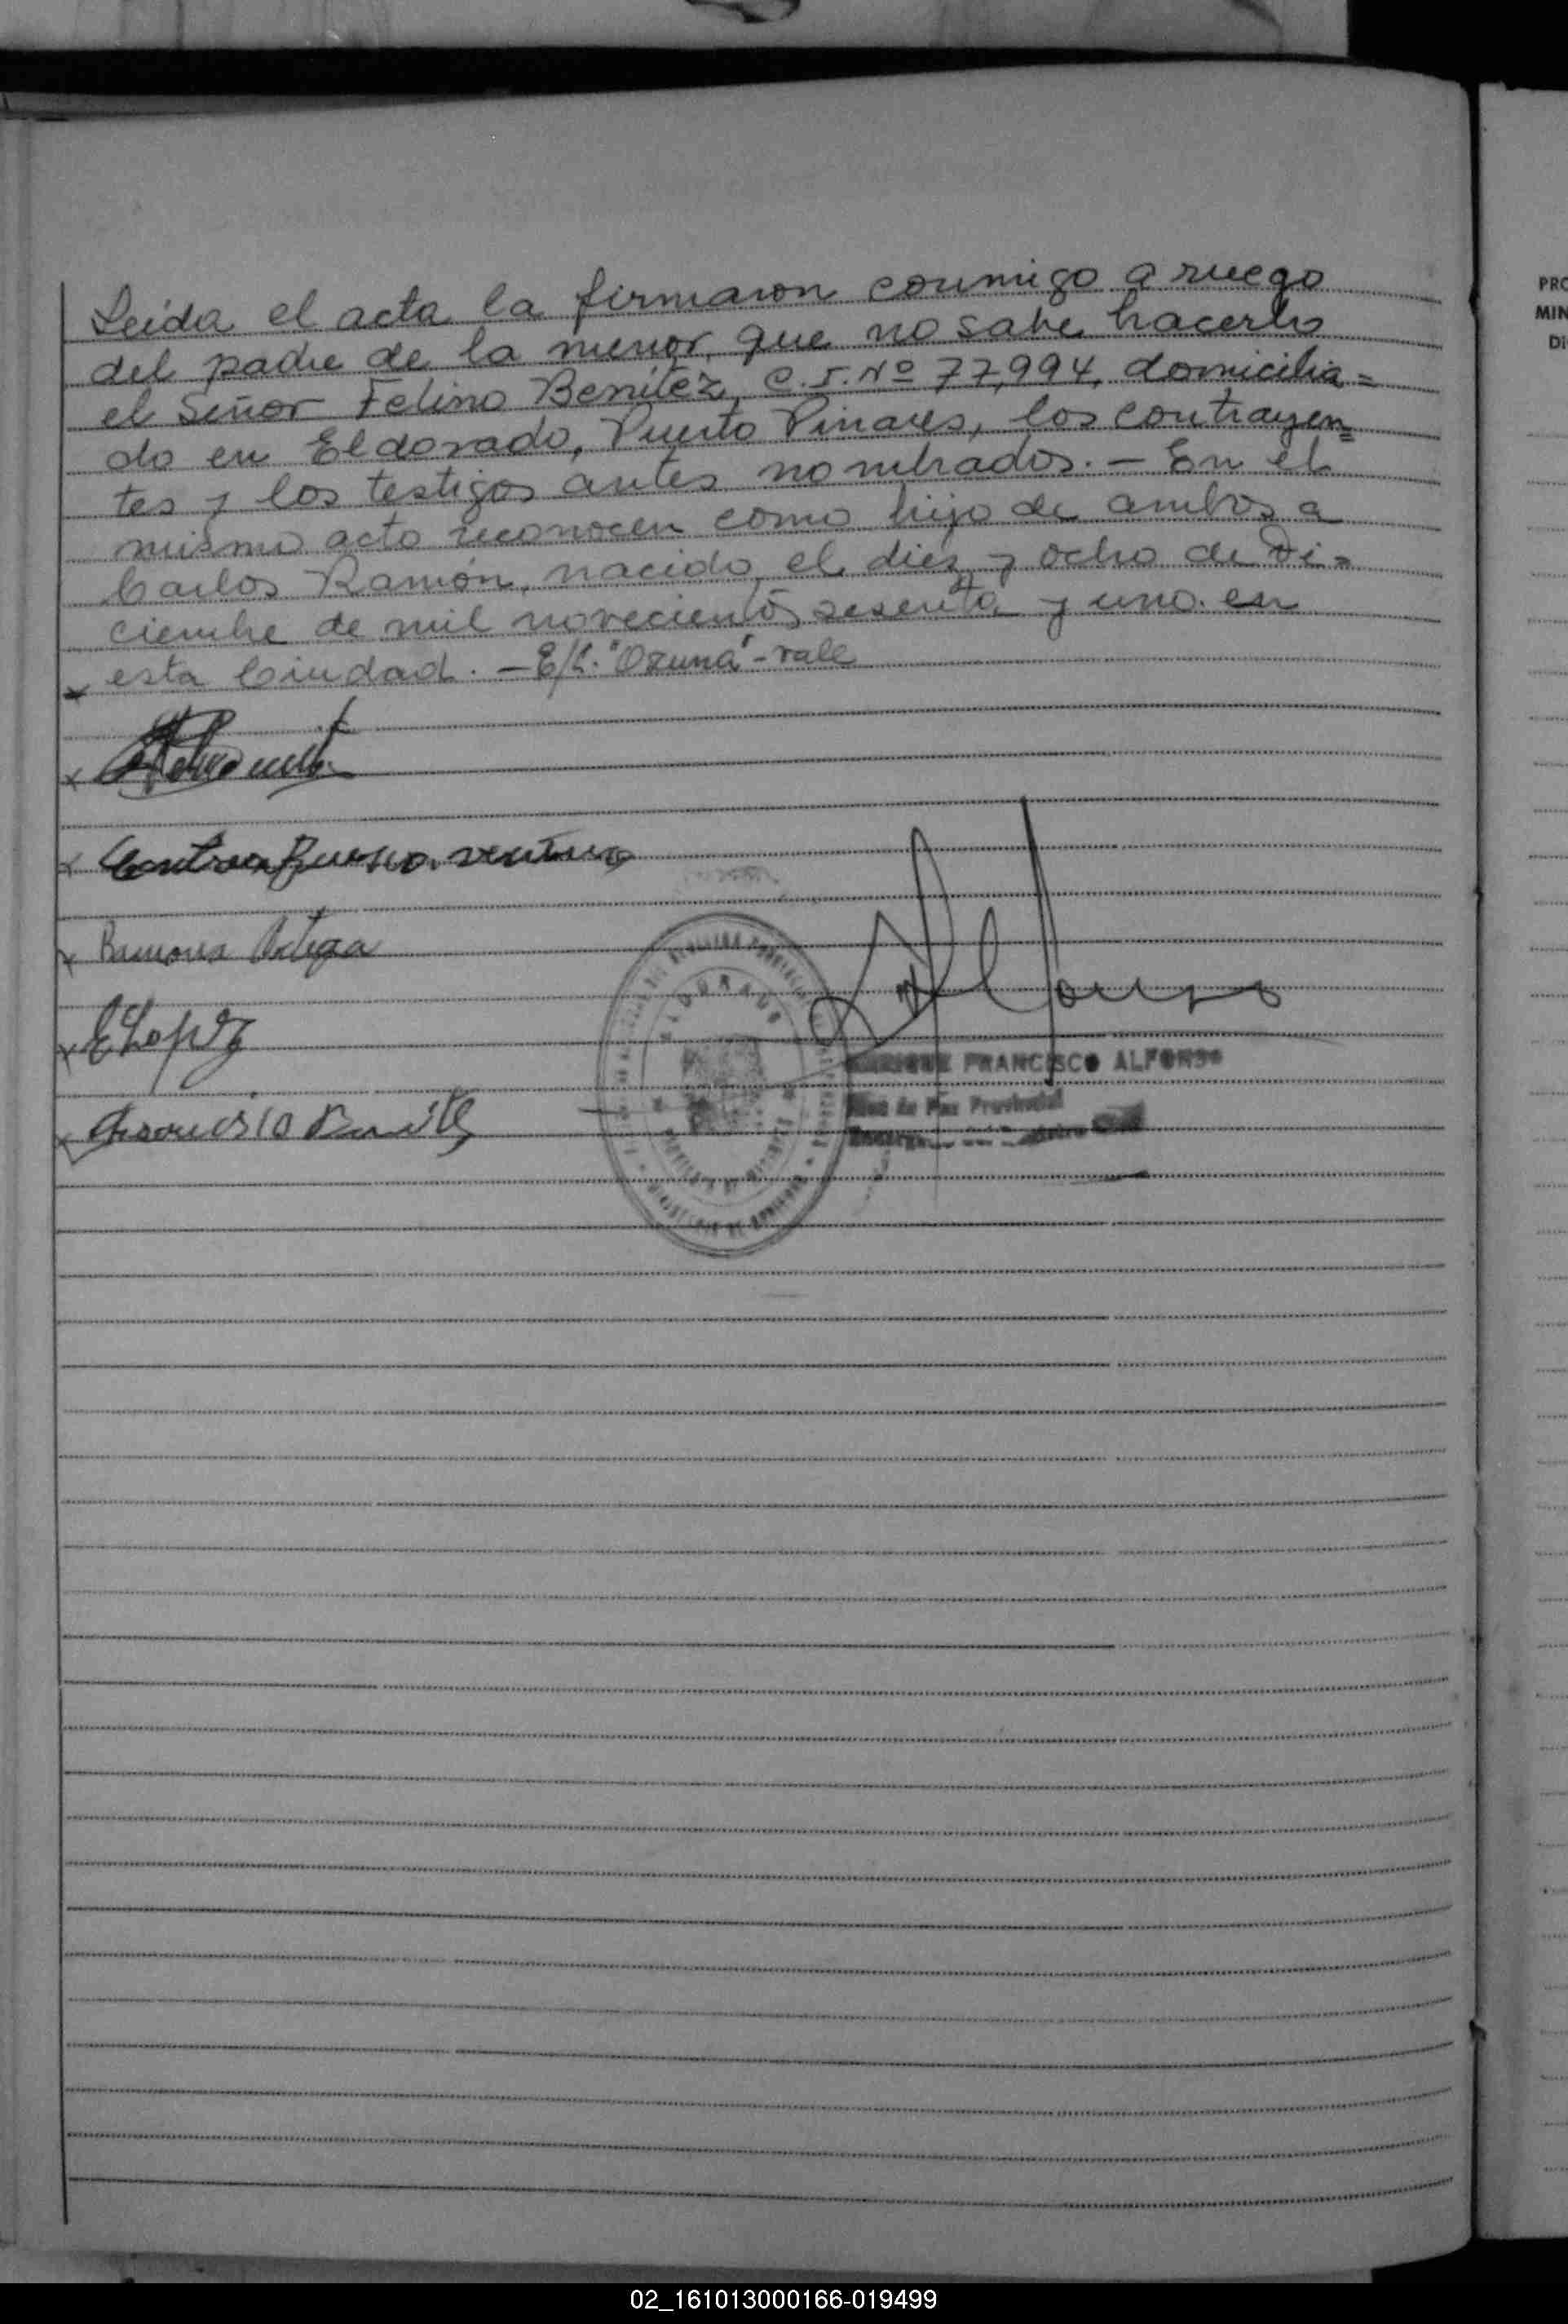 Leída el acta la firmaron conmigo a ruego
del padre de la menor, que no sabe hacerlo
el Señor Felino Benítez, C.I. Nº 77,994, domicilia=
do en Eldorado, Puerto Pinares, los contrayen=
tes y los testigos antes nombrados. - En el
mismo acto reconocen como hijo de ambos a
Carlos Ramón, nacido el diez y ocho de Di=
ciembre de mil novecientos sesenta y uno en
esta Ciudad. - E/L. "Ozuna" - vale
Buenaventura
Ramona Ortega
E Lopez
FRANCISCO ALFONSO
Juez de Paz Provincial
PRO
MIN
DI
02_161013000166-019499